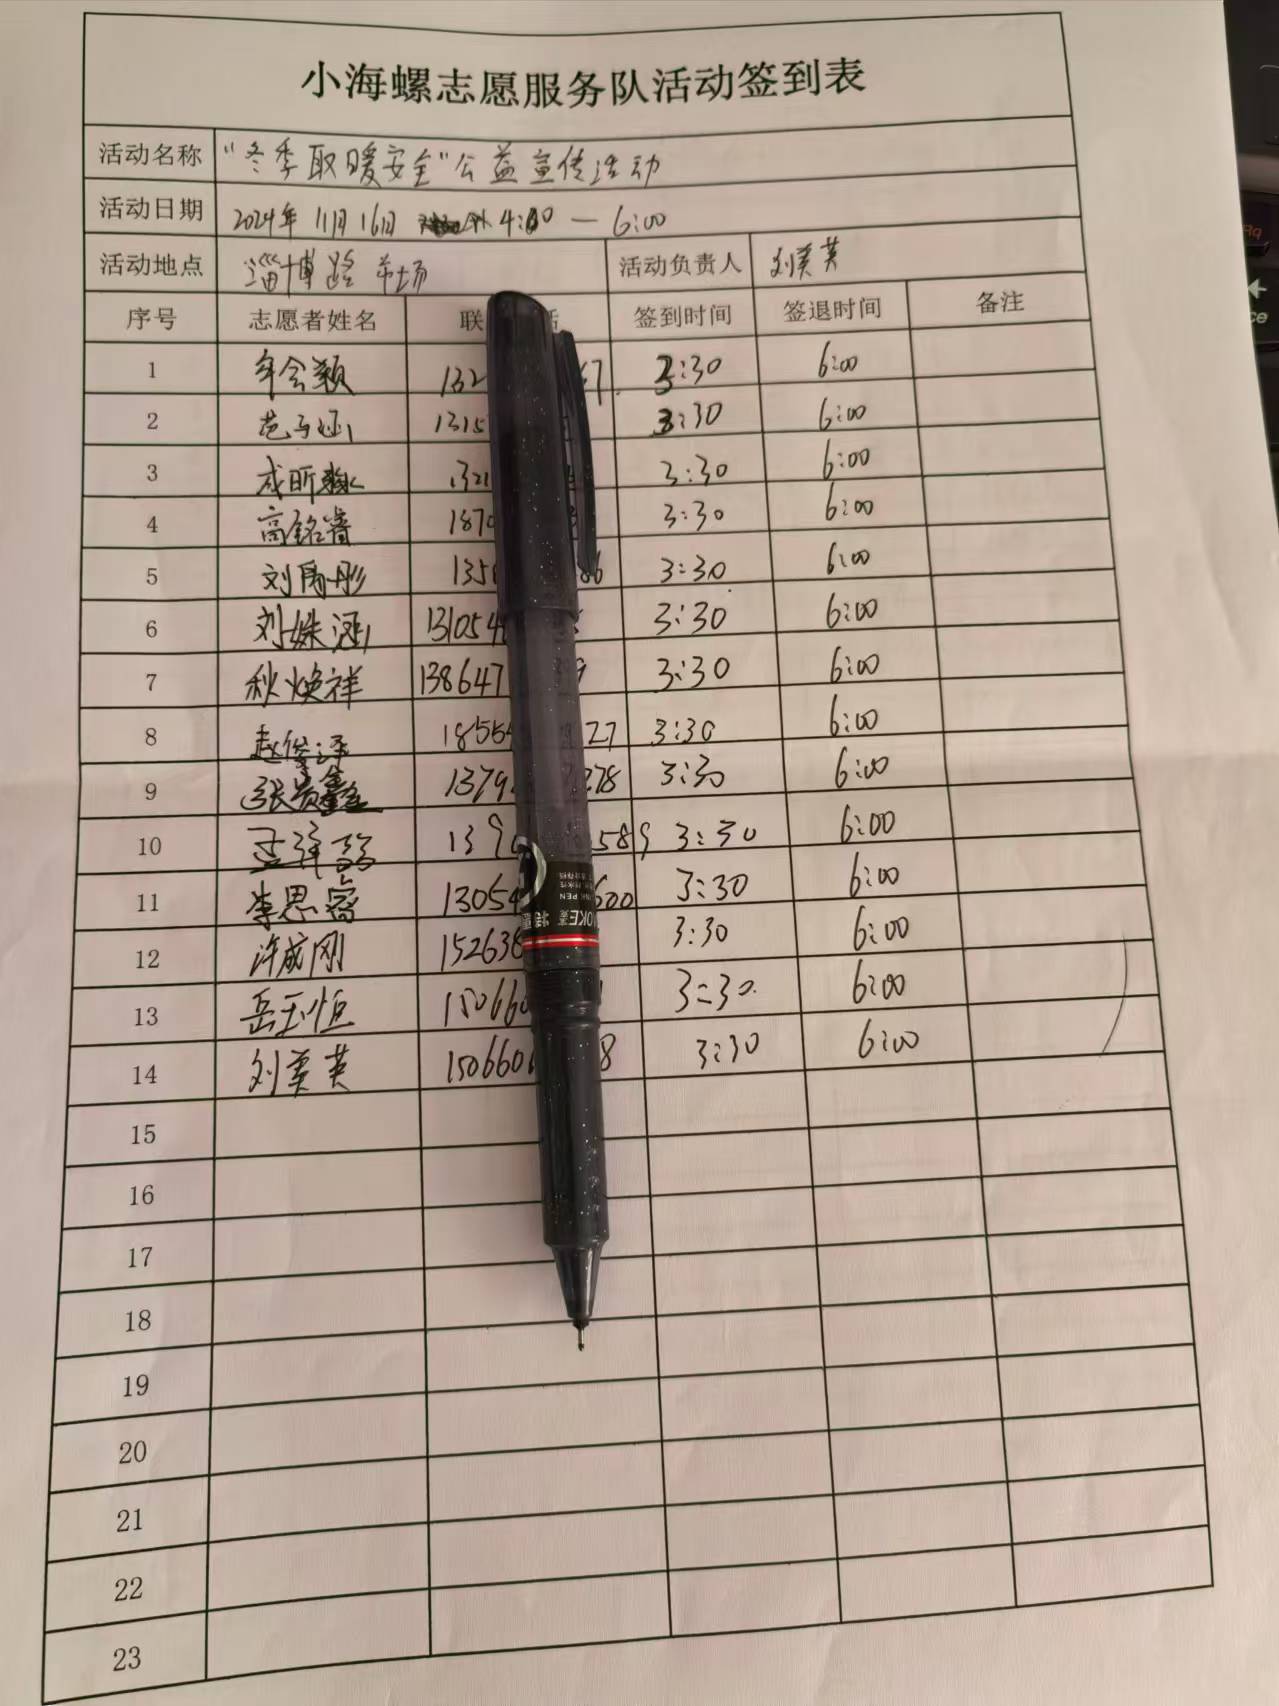 小海螺志愿服务队活动签到表
活动名称 “冬季取暖安全”公益宣传活动
活动日期 2024年11月16日 4:00 — 6:00
活动地点 淄博路市场 活动负责人 刘美英
序号 志愿者姓名 联 话 签到时间 签退时间 备注
1 年会颖 132 67 3:30 6:00
2 范 涵 1315 3:30 6:00
3 成昕 1321 3:30 6:00
4 高铭睿 1870 3:30 6:00
5 刘禹彤 135 86 3:30 6:00
6 刘姝涵 13105 3:30 6:00
7 秋焕祥 138647 9 3:30 6:00
8 赵俊泽 1855 27 3:30 6:00
9 张贵鑫 1379 278 3:30 6:00
10 孟祥 139 589 3:30 6:00
11 李思睿 13054 600 3:30 6:00
12 许成刚 152638 3:30 6:00
13 岳玉恒 150660 3:30 6:00
14 刘美英 150660 8 3:30 6:00
15
16
17
18
19
20
21
22
23